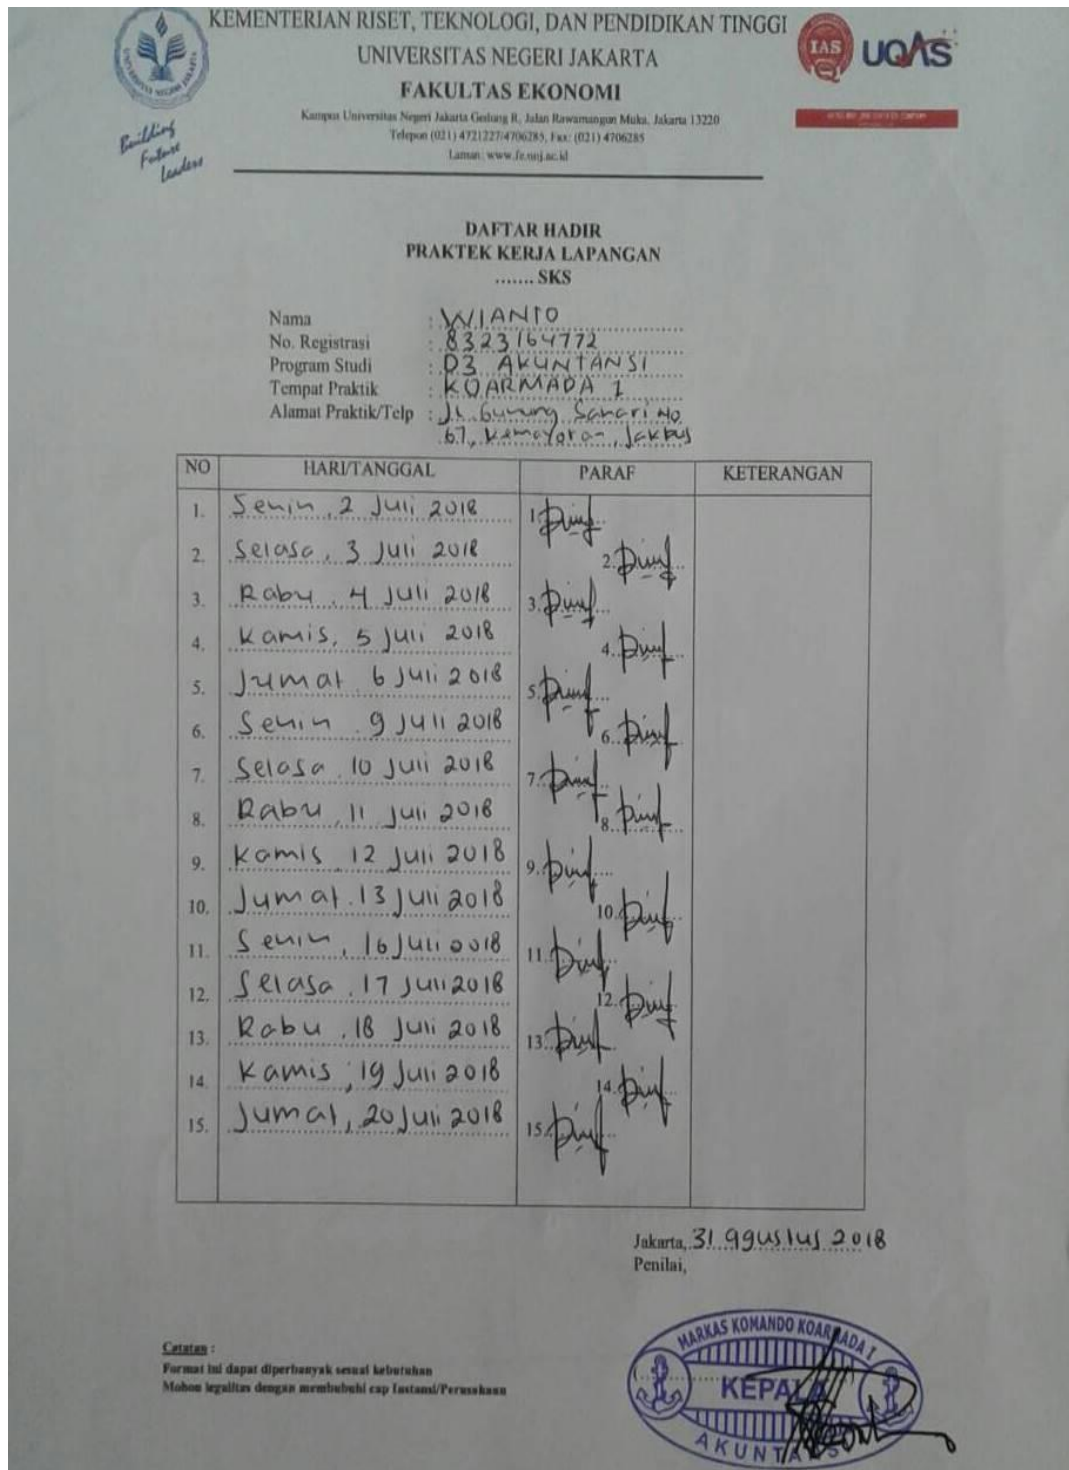 KEMENTERIAN RISET, TEKNOLOGI, DAN PENDIDIKAN TINGGI
UNIVERSITAS NEGERI JAKARTA
FAKULTAS EKONOMI
Kampus Universitas Negeri Jakarta Gedung R, Jalan Rawamangun Muka, Jakarta 13220
Telepon (021) 4721227/4706285, Fax: (021) 4706285
Laman: www.fe.unj.ac.id
UNIVERSITAS NEGERI JAKARTA
Building
Future
Leaders
IAS
UQAS
DAFTAR HADIR
PRAKTEK KERJA LAPANGAN
....... SKS
Nama : WIANTO
No. Registrasi : 8323164772
Program Studi : D3 AKUNTANSI
Tempat Praktik : KOARMADA 1
Alamat Praktik/Telp : Jl. Gunung Sahari No
67, Kemayoran, Jakpus
NO HARI/TANGGAL PARAF KETERANGAN
1. Senin, 2 Juli 2018 1.
2. Selasa, 3 Juli 2018 2.
3. Rabu, 4 Juli 2018 3.
4. Kamis, 5 Juli 2018 4.
5. Jumat 6 Juli 2018 5.
6. Senin 9 Juli 2018 6.
7. Selasa, 10 Juli 2018 7.
8. Rabu, 11 Juli 2018 8.
9. Kamis 12 Juli 2018 9.
10. Jumat. 13 Juli 2018 10.
11. Senin, 16 Juli 0018 11.
12. Selasa, 17 Juli 2018 12.
13. Rabu, 18 Juli 2018 13.
14. Kamis, 19 Juli 2018 14.
15. Jumat, 20 Juli 2018 15.
Jakarta, 31 agustus 2018
Penilai,
Catatan :
Format ini dapat diperbanyak sesuai kebutuhan
Mohon legalitas dengan membubuhi cap Instansi/Perusahaan
MARKAS KOMANDO KOARMADA I
KEPALA